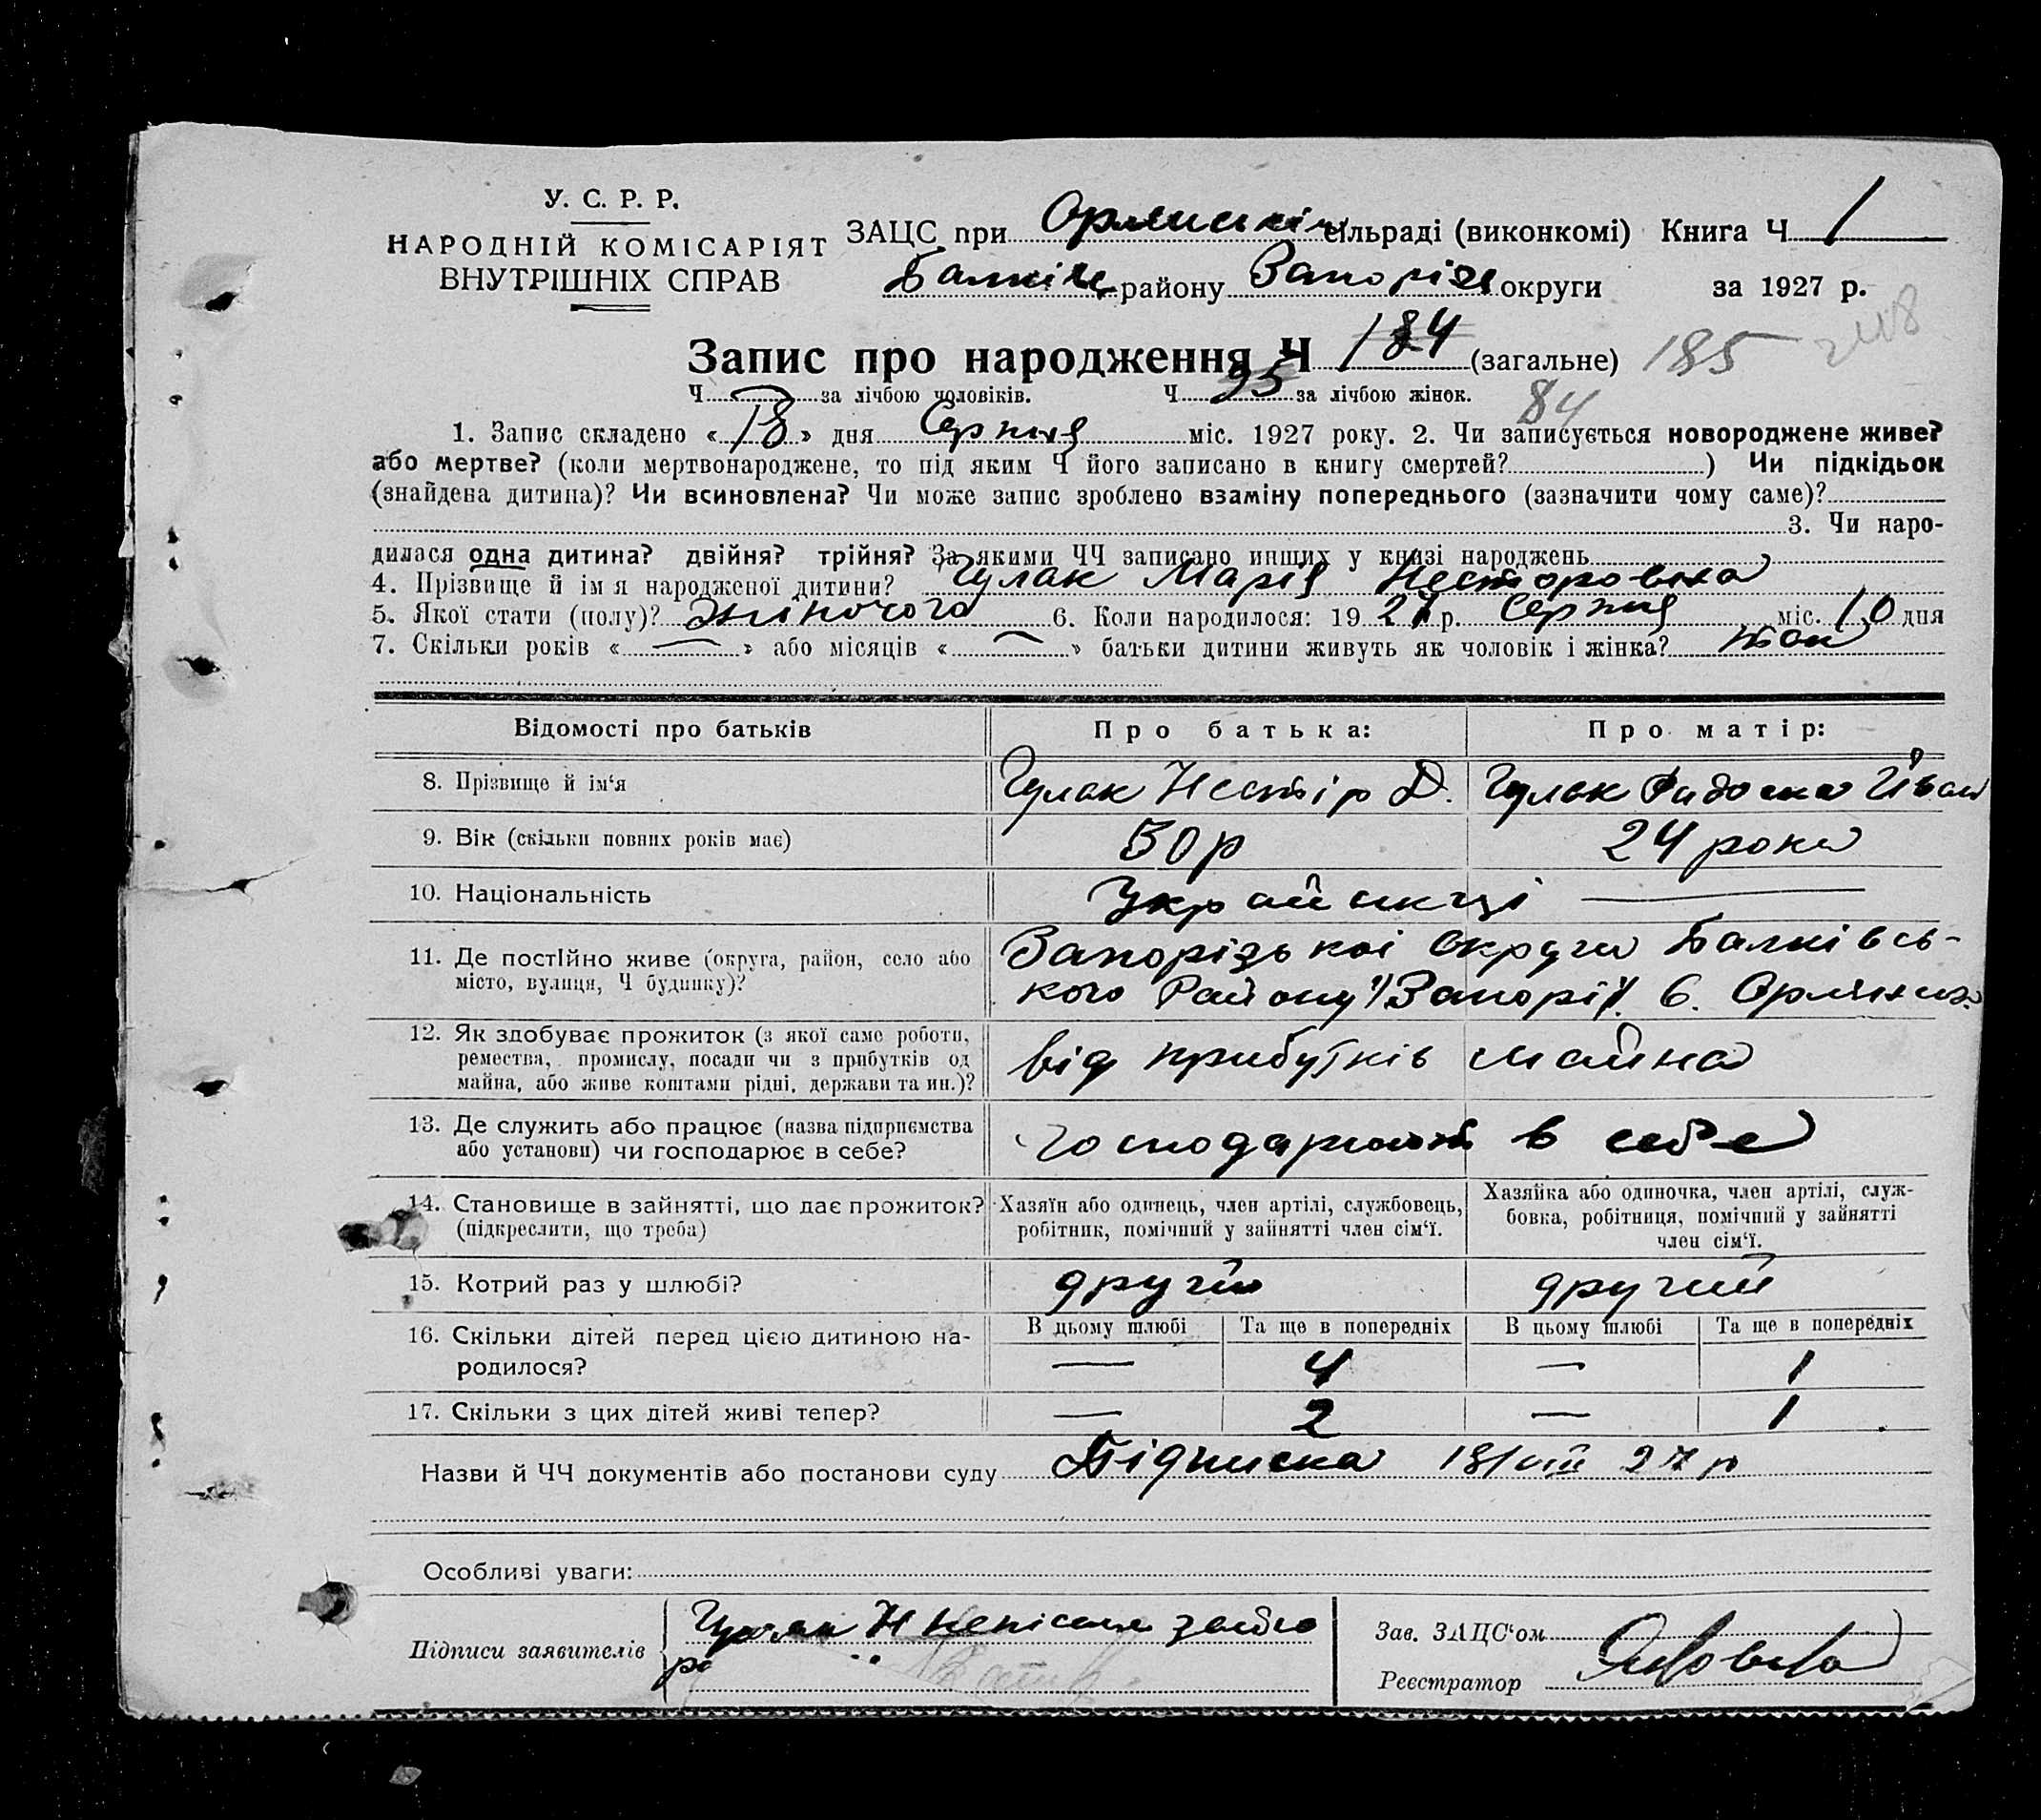 У. С. Р. Р.
НАРОДНІЙ КОМІСАРІЯТ
ВНУТРІШНІХ СПРАВ
ЗАЦС при сільраді (виконкомі) Книга Ч 1
району Запоріз округи за 1927 р.
Запис про народження Ч 184 (загальне) 185
Ч за лічбою чоловіків. Ч 95 за лічбою жінок. 84
1. Запис складено « 18 » дня Серпня міс. 1927 року. 2. Чи записується новороджене живе?
або мертве? (коли мертвонароджене, то під яким Ч його записано в книгу смертей? ) Чи підкідьок
(знайдена дитина)? Чи всиновлена? Чи може запис зроблено взаміну попереднього (зазначити чому саме)?
3. Чи наро-
дилася одна дитина? двійня? трійня? За якими ЧЧ записано инших у книзі народжень
4. Прізвище й ім я народженої дитини? Гулак Марія Несторовна
5. Якої стати (полу)? жіночого 6. Коли народилося: 19 27 р. Серпня міс. 10 дня
7. Скільки років « — » або місяців « — » батьки дитини живуть як чоловік і жінка?
Відомості про батьків Про батька: Про матір:
8. Прізвище й ім‘я Гулак Нестір Д. Гулак Іван
9. Вік (скільки повних років має) 50 р 24 роки
10. Національність Українці —
11. Де постійно живе (округа, район, село або Запорізькоі округи Балківсь-
місто, вулиця, Ч будинку)? кого Району
12. Як здобуває прожиток (з якої саме роботи,
ремества, промислу, посади чи з прибутків од від прибутків майна
майна, або живе коштами рідні, держави та ин.)?
13. Де служить або працює (назва підприємства
або установи) чи господарює в себе? господарюють в себе
14. Становище в зайнятті, що дає прожиток? Хазяїн або одинець, член артілі, службовець, Хазяйка або одиночка, член артілі, служ-
(підкреслити, що треба) робітник, помічний у зайнятті член сім‘ї. бовка, робітниця, помічний у зайнятті
член сім‘ї.
15. Котрий раз у шлюбі? другий другий
16. Скільки дітей перед цією дитиною на- В цьому шлюбі Та ще в попередніх В цьому шлюбі Та ще в попередніх
родилося? — 4 — 1
17. Скільки з цих дітей живі тепер? — 2 — 1
Назви й ЧЧ документів або постанови суду Підписка 18/VIII 27 р
Особливі уваги:
Підписи заявителів Гулак Н
Зав. ЗАЦС‘ом
Реєстратор